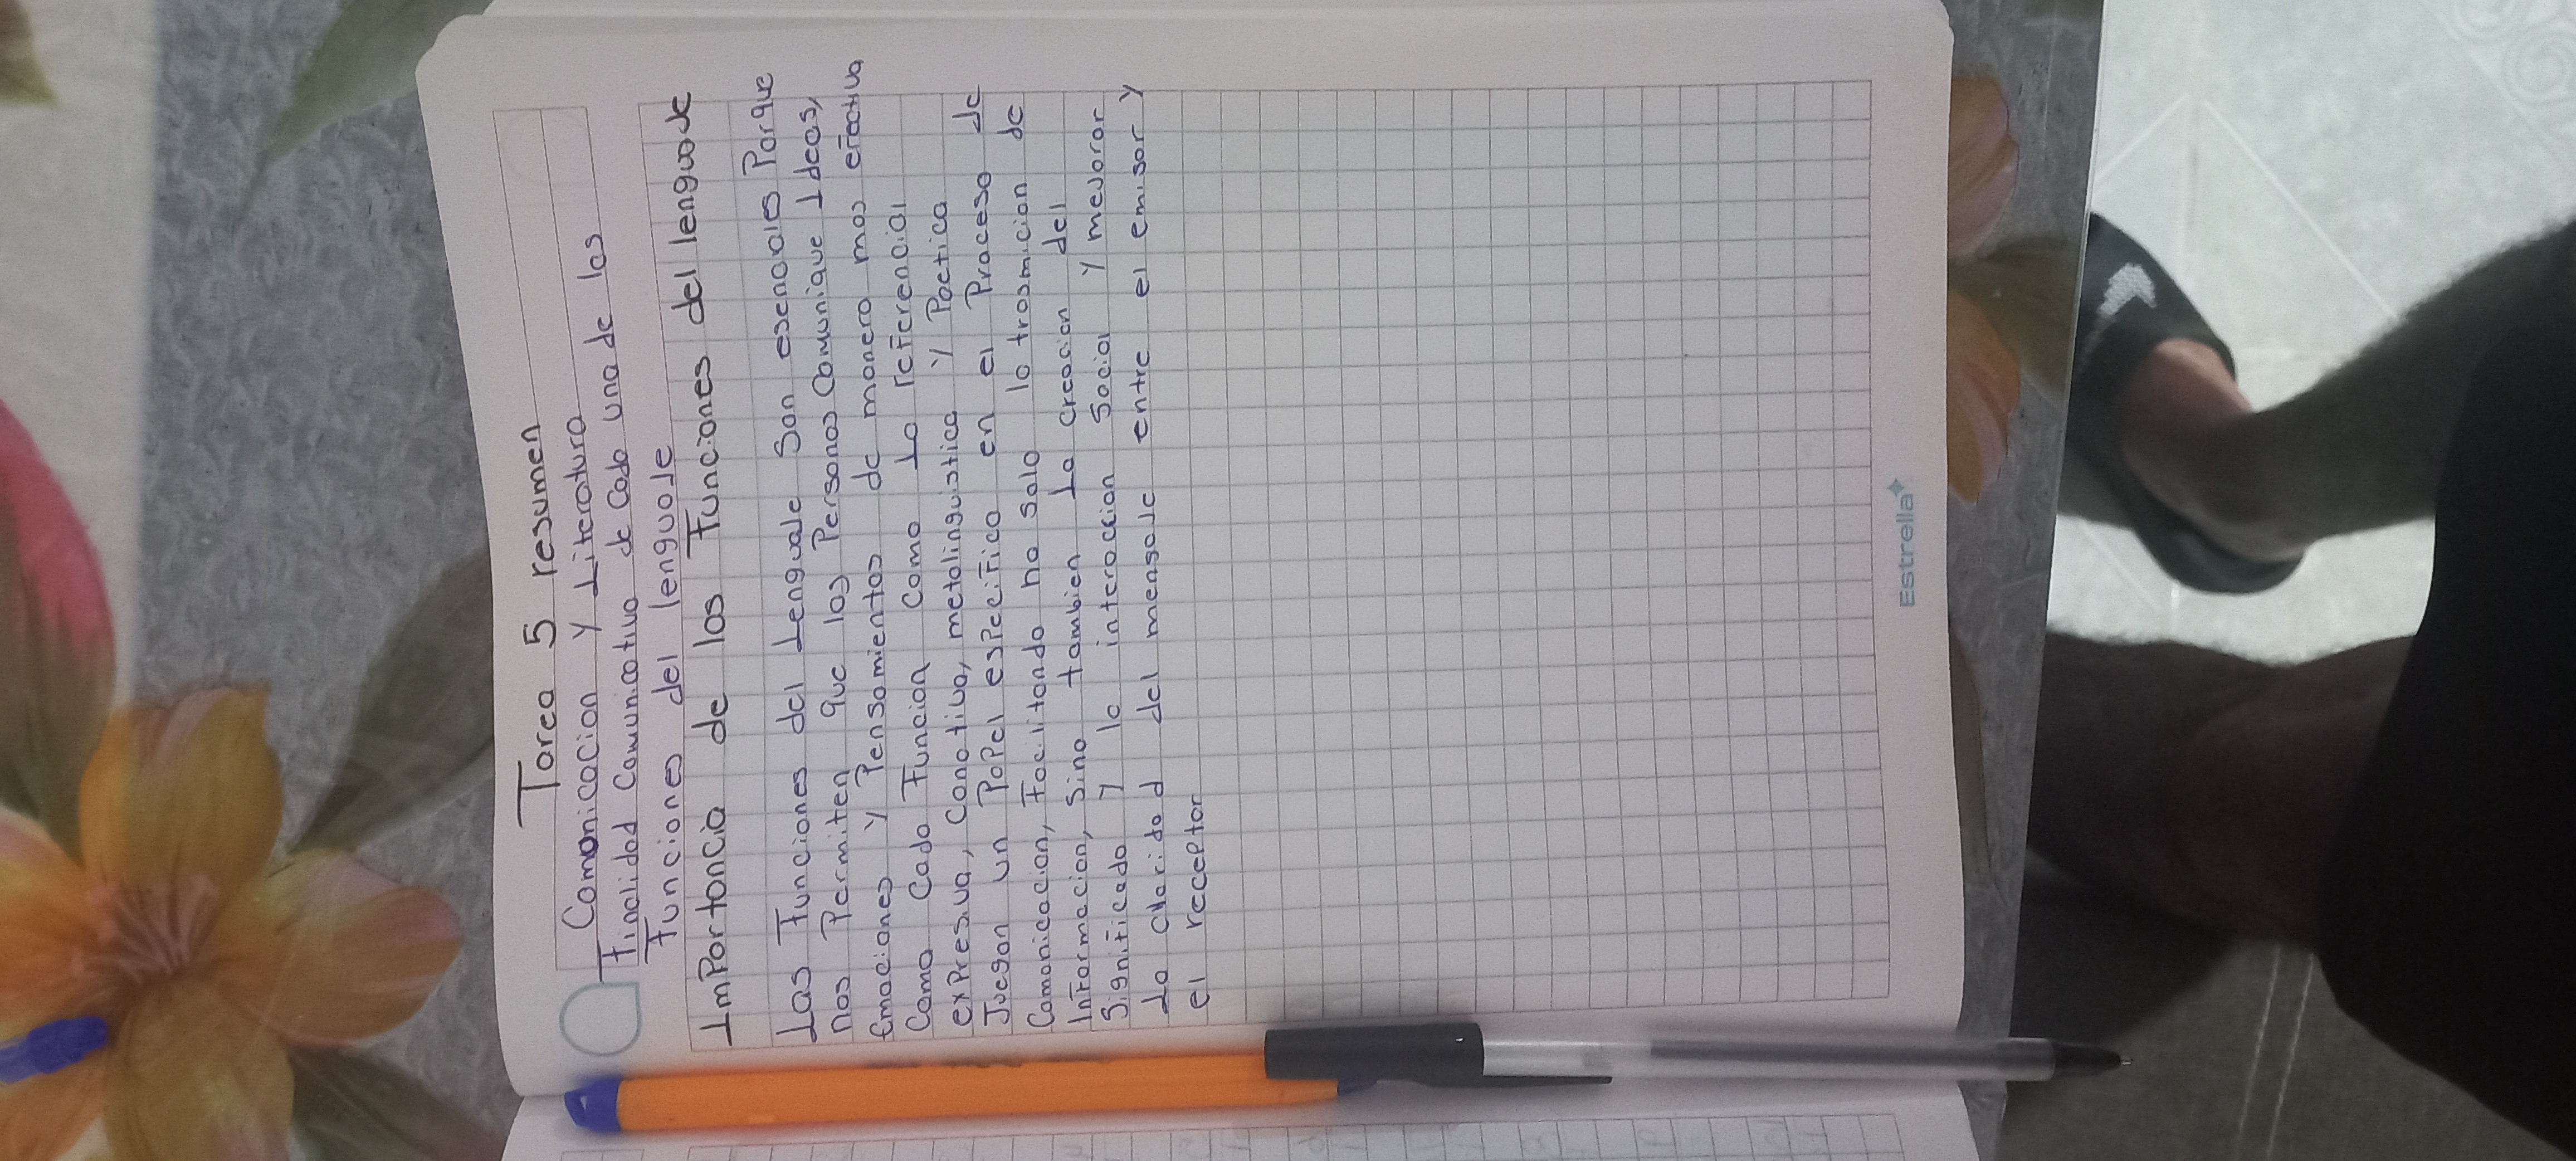 Tarea 5 resumen
Comonicacion y Literatura
Finalidad Comunicativa de Cada una de las
Funciones del lenguaje
ImPortancia de las Funciones del lenguaje
Las Funciones del Lenguaje Son esenciales Porque
nos Permiten que las Personas Comunique Ideas,
Emociones y Pensamientos de manera mas efectiva
Como Cada Funcion Como La referencial
exPresiva, Conotiva, metalinguistica y Poetica
Juegan un PaPel esPecifico en el Proceso de
Comonicacion, Facilitando no solo la trasmicion de
Informacion, Sino tambien La creacion del
Significado y la interaccion Social y mejorar
La claridad del mensaje entre el emisor y
el receptor
Estrella